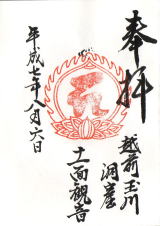 奉拝
越前玉川
洞窟
十一面観音
平成七年八月六日